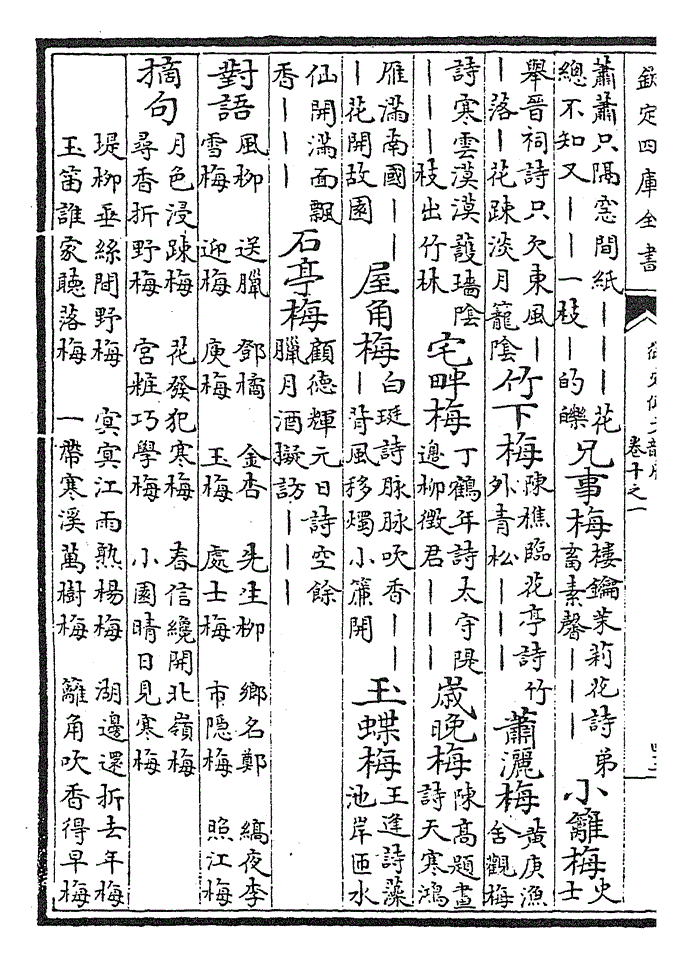 欽定四庫全書
卷十之一
蕭蕭只隔窓間紙｜｜｜花總不知又｜｜一枝｜的皪 兄事梅 樓鑰茉莉花詩弟畜素馨｜｜｜ 小籬梅 史士
舉晋祠詩只欠東風｜｜落｜花疎淡月籠陰 竹下梅 陳樵臨花亭詩竹外青松｜｜｜ 蕭灑梅 黃庚漁舍觀梅
詩寒雲漠漠護墻陰｜｜｜枝出竹林 宅畔梅 丁鶴年詩太守隄邊柳徵君｜｜｜ 歲晚梅 陳高題畫詩天寒鴻
雁滿南國｜｜｜花開故園 屋角梅 白珽詩脉脉吹香｜｜｜背風移燭小簾開 玉蝶梅 王逢詩藻池岸匝水
仙開滿面飄香｜｜｜ 石亭梅 顧德輝元日詩空餘臘月酒擬訪｜｜｜
對語 風柳 雪梅 送臘 迎梅 鄧橘 庾梅 金杏 玉梅 先生柳 處士梅 鄉名鄭 市隱梅 縞夜李 照江梅
摘句 月色浸疎梅 尋香折野梅 花發犯寒梅 宮粧巧學梅 春信纔開北嶺梅 小園晴日見寒梅
堤柳垂絲間野梅 玉笛誰家聽落梅 㝠㝠江雨熟楊梅 一帶寒溪萬樹梅 湖邊還折去年梅 籬角吹香得早梅